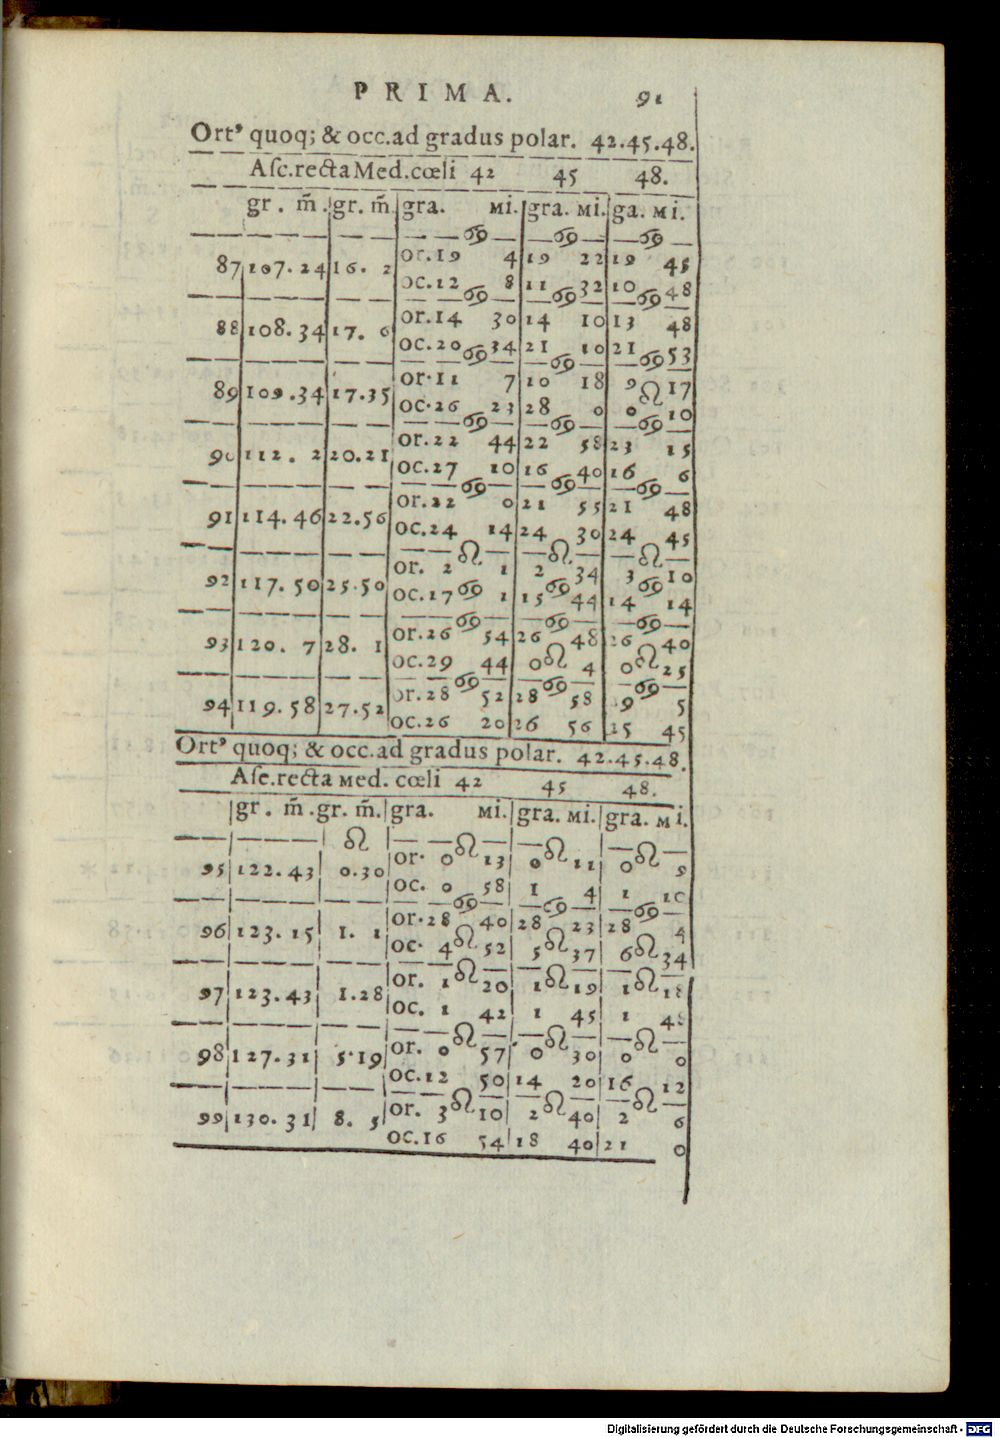 PRIMA. 91
Ort⁹ quoq; & occ. ad gradus polar. 42.45.48.
Aſc. recta Med. cœli 42 45 48.
gr. m̃. gr. m̃. gra. MI. gra. MI. ga. MI.
♋ ♋ ♋
or. 19 4 19 22 19 45
87 107. 24 16. 2
oc. 12 8 11 32 10 48
♋ ♋ ♋
or. 14 30 14 10 13 48
88 108. 34 17. 6
oc. 20 34 21 10 21 53
♋ ♋ ♋
or. 11 7 10 18 9 17
89 109. 34 17. 35 ♌
oc. 26 23 28 0 0 10
♋ ♋ ♋
or. 22 44 22 58 23 15
90 112. 2 20. 21
oc. 27 10 16 40 16 6
♋ ♋ ♋
or. 22 0 21 55 21 48
91 114. 46 22. 56
oc. 24 14 24 30 24 45
♌ ♌ ♌
or. 2 1 2 34 3 10
92 117. 50 25. 50 ♋ ♋ ♋
oc. 17 1 15 44 14 14
♋ ♋ ♋
or. 26 54 26 48 26 40
93 120. 7 28. 1 ♌ ♌
oc. 29 44 0 4 0 25
♋ ♋ ♋
or. 28 52 28 58 9 5
94 119. 58 27. 52
oc. 26 20 26 56 25 45
Ort⁹ quoq; & occ. ad gradus polar. 42.45.48.
Aſc. recta Med. cœli 42 45 48.
gr. m̃. gr. m̃. gra. MI. gra. MI. gra. MI.
♌ ♌ ♌ ♌
or. 0 13 0 11 0 9
95 122. 43 0. 30
oc. 0 58 1 4 1 10
♋ ♋ ♋
or. 28 40 28 23 28 4
96 123. 15 1. 1 ♌ ♌ ♌
oc. 4 52 5 37 6 34
♌ ♌ ♌
or. 1 20 1 19 1 18
97 123. 43 1. 28
oc. 1 42 1 45 1
♌ ♌ ♌
or. 0 57 0 30 0 0
98 127. 31 5. 19
oc. 12 50 14 20 16 12
♌ ♌ ♌
or. 3 10 2 40 2 6
99 130. 31 8. 5
oc. 16 54 18 40 21 0
Digitalisierung gefördert durch die Deutsche Forschungsgemeinschaft - DFG